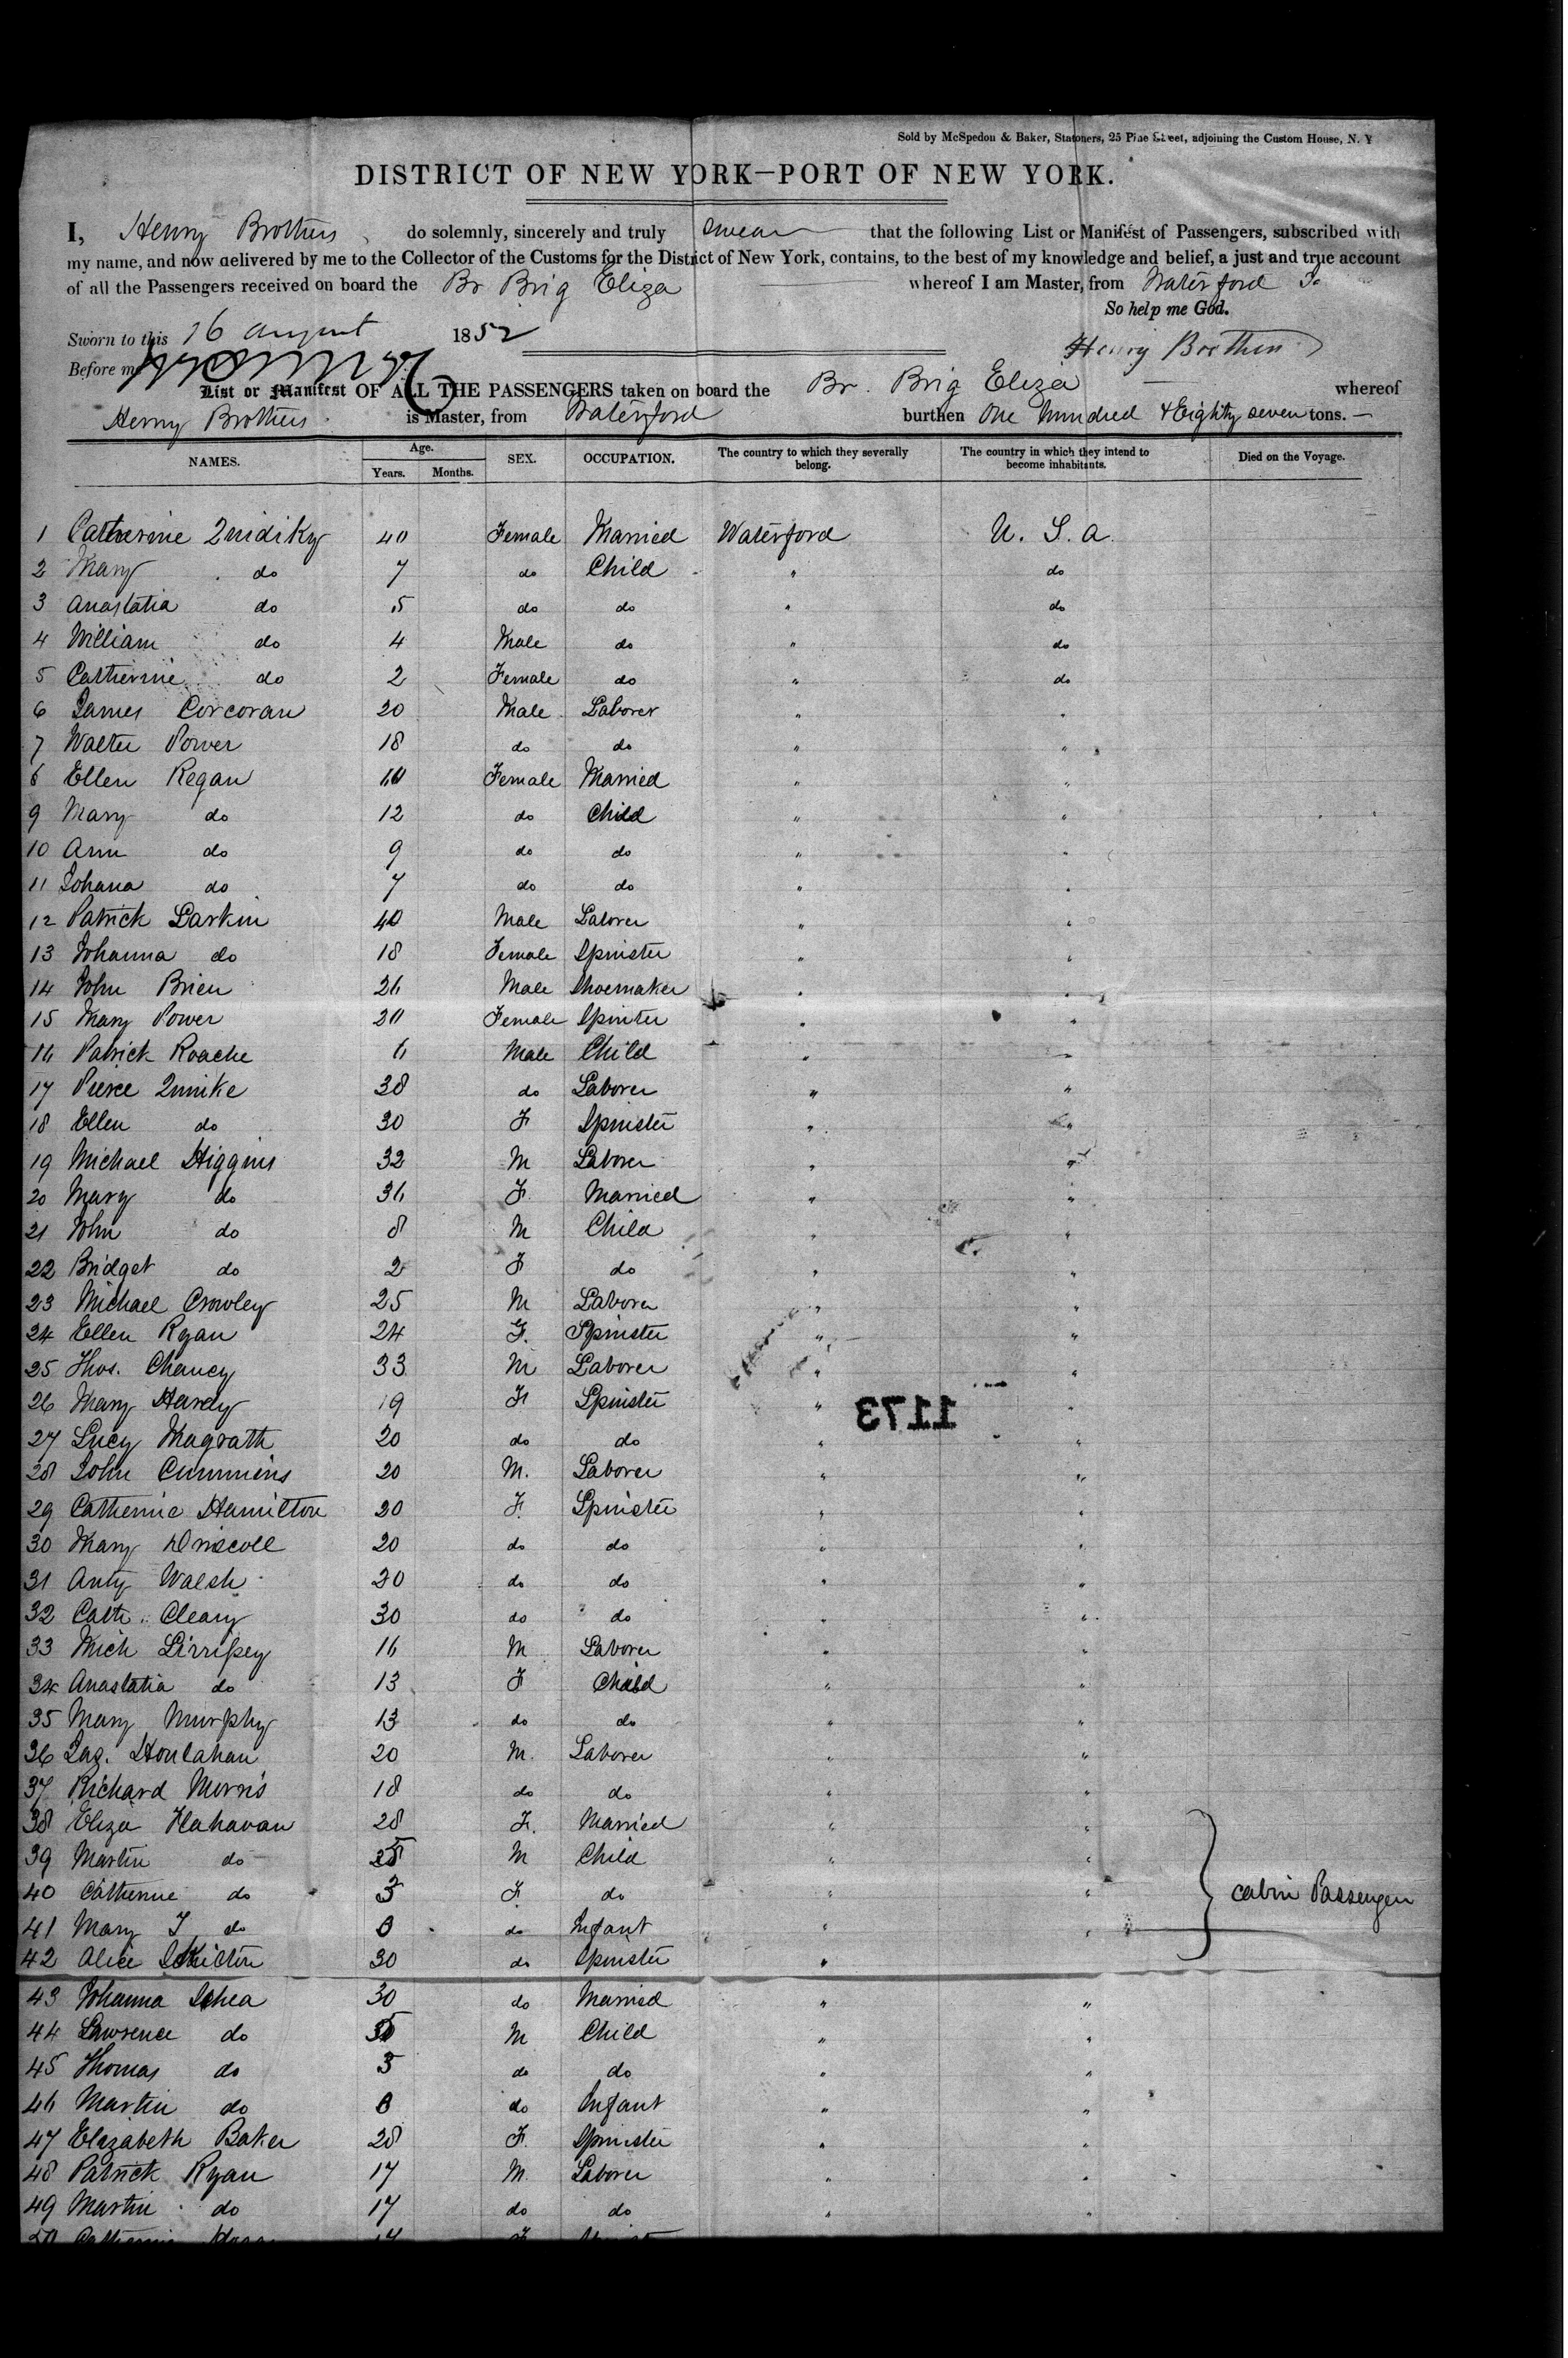 Sold by McSpedon & Baker, Stationers, 25 Pine Street, adjoining the Custom House, N. Y
DISTRICT OF NEW YORK—PORT OF NEW YORK.
I, Henry Brothers, do solemnly, sincerely and truly swear that the following List or Manifest of Passengers, subscribed with
my name, and now delivered by me to the Collector of the Customs for the District of New York, contains, to the best of my knowledge and belief, a just and true account
of all the Passengers received on board the Br Brig Eliza whereof I am Master, from Waterford
So help me God.
Sworn to this 16 august 1852
Henry Brothers
Before me
List or Manifest OF ALL THE PASSENGERS taken on board the Br. Brig Eliza whereof
Henry Brothers is Master, from Waterford burthen One hundred & Eighty seven tons.—
NAMES. Age. Years. Months. SEX. OCCUPATION. The country to which they severally belong. The country in which they intend to become inhabitants. Died on the Voyage.
1 Catherine 40 Female Married Waterford U. S. a.
2 Mary do 7 do Child " do
3 Anastatia do 5 do do " do
4 William do 4 Male do " do
5 Catherine do 2 Female do " do
6 James Corcoran 20 Male Laborer " "
7 Walter Power 18 do do " "
8 Ellen Regan 40 Female Married " "
9 Mary do 12 do Child " "
10 Ann do 9 do do " "
11 Johana do 7 do do " "
12 Patrick Larkin 40 Male Laborer " "
13 Johanna do 18 Female Spinster " "
14 John Brien 26 Male Shoemaker " "
15 Mary Power 20 Female Spinster " "
16 Patrick Roache 6 Male Child " "
17 Pierce 38 do Laborer " "
18 Ellen do 30 F Spinster " "
19 Michael Higgins 32 M Laborer " "
20 Mary do 36 F. Married " "
21 John do 8 M Child " "
22 Bridget do 2 F do " "
23 Michael Crowley 25 M Laborer " "
24 Ellen Ryan 24 F. Spinster " "
25 Thos. Chancy 33 M Laborer " "
26 Mary Hardy 19 F Spinster " "
1173
27 Lucy Magrath 20 do do " "
28 John Cummins 20 M. Laborer " "
29 Catherine Hamilton 20 F. Spinster " "
30 Mary Driscoll 20 do do " "
31 Anty Walsh 20 do do " "
32 Cath. Cleary 30 do do " "
33 Mich 16 M Laborer " "
34 Anastatia do 13 F Child " "
35 Mary Murphy 13 do do " "
36 Jas. Houlahan 20 M. Laborer " "
37 Richard Morris 18 do do " "
38 Eliza Flahavan 28 F. Married " "
39 Martin do 5 M Child " "
40 Catherine do 3 F. do " " cabin Passengers
41 Mary J do 0 do Infant " "
42 Alice 30 do Spinster "
43 Johanna Shea 30 do Married " "
44 Lawrence do 5 M Child " "
45 Thomas do 3 do do " "
46 Martin do 0 do Infant " "
47 Elizabeth Baker 28 F. Spinster " "
48 Patrick Ryan 17 M. Laborer " "
49 Martin do 17 do do " "
50 Catherine